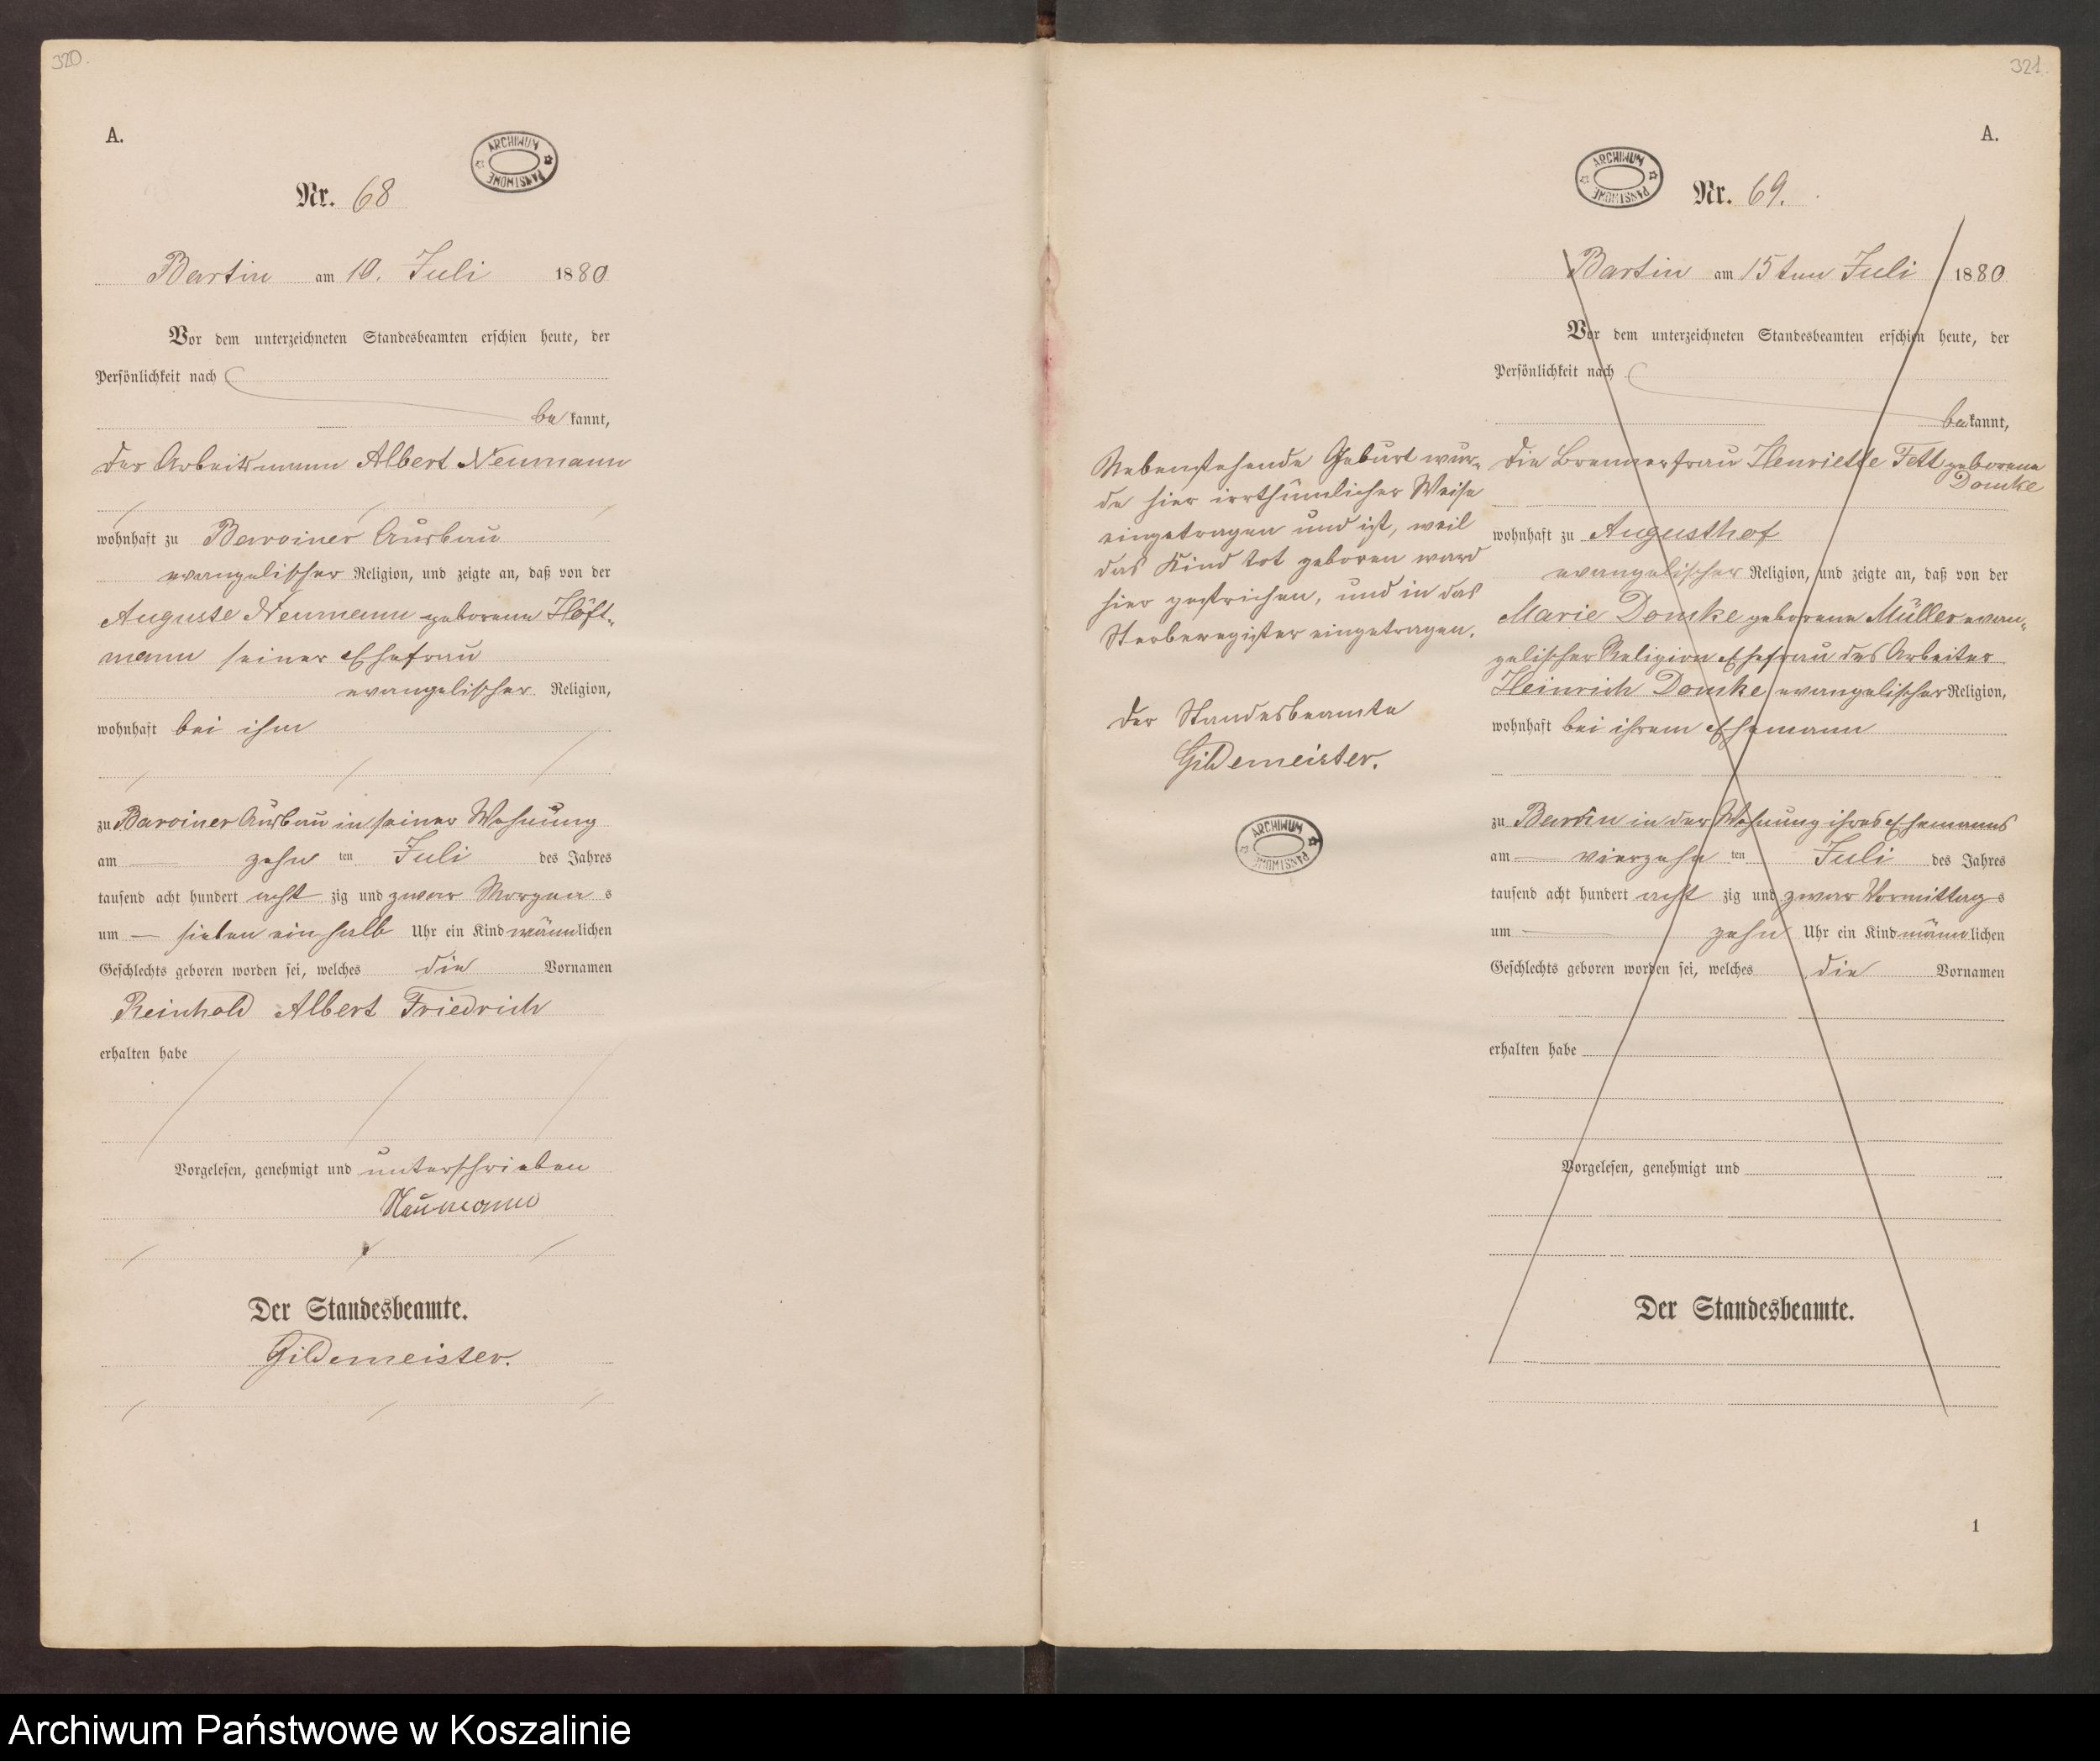 320.
A.
ARCHIWUM PAŃSTWOWE
Nr. 68
Bartin am 10. Juli 1880
Vor dem unterzeichneten Standesbeamten erschien heute, der
Persönlichkeit nach
bekannt,
der Arbeitsmann Albert Neumann
wohnhaft zu Barviner Ausbau
evangelischer Religion, und zeigte an, daß von der
Auguste Neumann geborene Höft-
mann seiner Ehefrau
evangelischer Religion,
wohnhaft bei ihm
zu Barviner Ausbau in seiner Wohnung
am zehn ten Juli des Jahres
tausend acht hundert acht zig und zwar Morgen s
um sieben ein halb Uhr ein Kind männlichen
Geschlechts geboren worden sei, welches die Vornamen
Reinhold Albert Friedrich
erhalten habe
Vorgelesen, genehmigt und unterschrieben
Neumann
Der Standesbeamte.
Gildemeister.
321.
A.
ARCHIWUM PAŃSTWOWE
Nr. 69.
Bartin am 15ten Juli 1880
Vor dem unterzeichneten Standesbeamten erschien heute, der
Persönlichkeit nach
bekannt,
die Brennerfrau Henriette Fett geborene
Domke
wohnhaft zu Augusthof
evangelischer Religion, und zeigte an, daß von der
Marie Domke geborene Müller evan-
gelischer Religion Ehefrau des Arbeiter
Heinrich Domke evangelischer Religion,
wohnhaft bei ihrem Ehemann
zu in der Wohnung ihres Ehemanns
am vierzehn ten Juli des Jahres
tausend acht hundert acht zig und zwar Vormittag s
um zehn Uhr ein Kind männlichen
Geschlechts geboren worden sei, welches die Vornamen
erhalten habe
Vorgelesen, genehmigt und
Der Standesbeamte.
1
Nebenstehende Geburt wur-
de hier irrthümlicher Weise
eingetragen und ist, weil
das Kind tot geboren ward
hier gestrichen, und in das
Sterberegister eingetragen.
Der Standesbeamte
Gildemeister.
ARCHIWUM PAŃSTWOWE
Archiwum Państwowe w Koszalinie